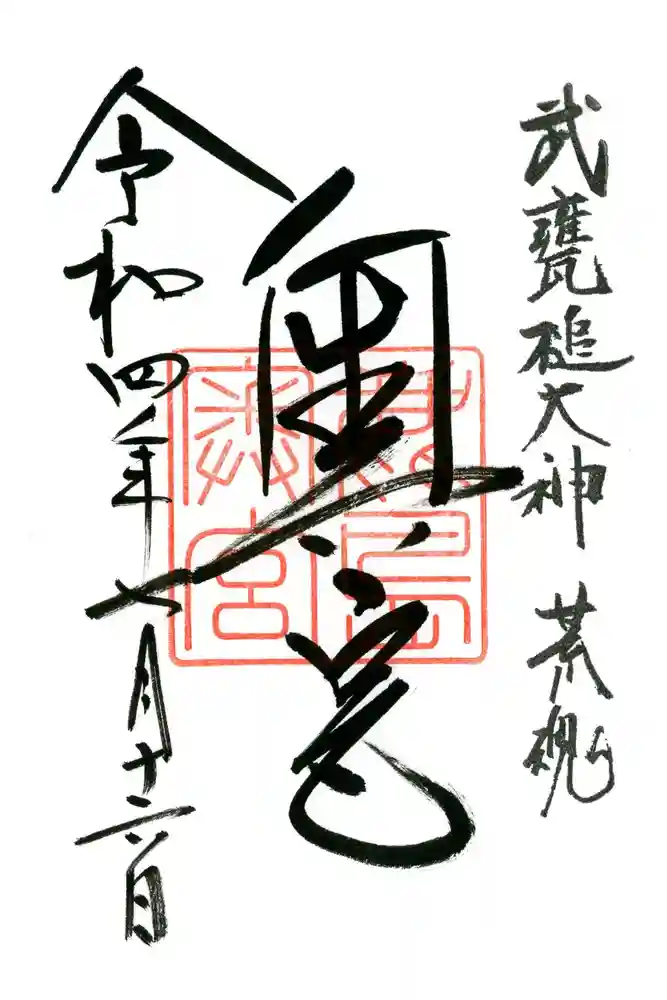 武甕槌大神 荒魂
奥宮
鹿島
奥宮
令和四年七月十六日